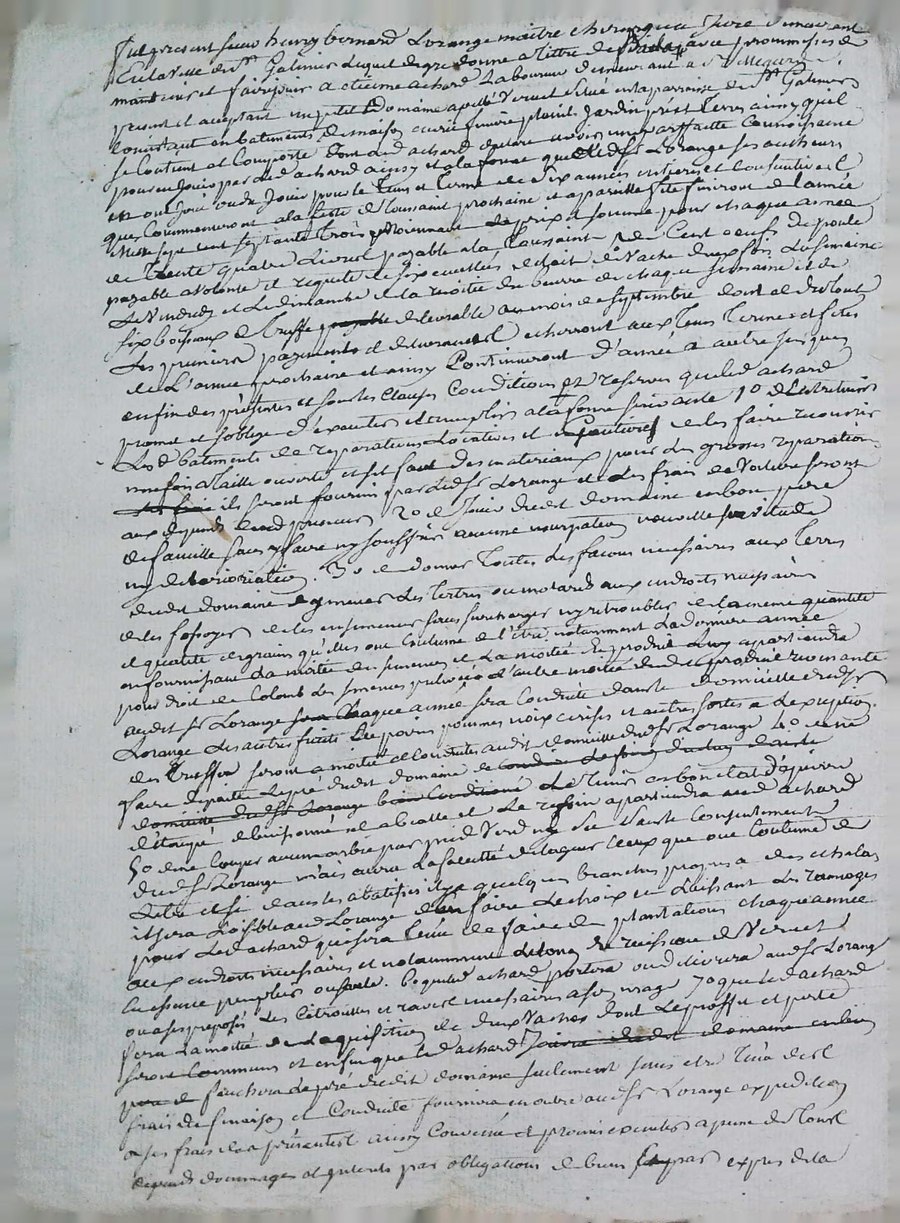 fut present sieur henry bernard Lorange maitre chirurgien juré demeurant
en la ville de St Galmier lequel de gre donne a titre de avec promesses de
maintenir et faire jouir a etienne achard Laboureur demeurant a St
present et acceptant un petit Domaine apellé Vernet situé en la parroisse de St Galmier
consistant en batiments de maison ecurie feniere plassil, Jardin prés et terres ainsy quil
se Contient et Comporte dont led achard declare avoir une parffaitte connoissance
pour en jouir par led achard ainsy et a la forme que ledit Sr Lorange ses autheurs
en ont joui ou du Jouir pour le tems et terme de six années entieres et consecutives
qui Commenceront a la feste de toussaint prochaine et a pareille feste finiront de l'année
mil sept cent septante trois moyennant le prix et somme pour chaque année
de trente quatre Livres payable a la Toussaint, de Cent oeufs de poule
payable a volonté et requete de six ecuelles de lait de Vache deux fois la semaine
le Vendredy et le dimanche de la moitié du beurre de chaque semaine et de
six boisseaux de truffe payable delivrable au mois de septembre dont et du tout
les premiers payements et echerront aux tems termes et fetes
de L'année prochaine et ainsy Continueront d'année a autre jusques
en fin des presentes et sous les Clauses Conditions et reserves que led achard
promet et s'oblige d'executer et remplir a la forme suivante 1o d'Entretenir
Lesd batiments de reparations Locatives et de les faire recouvrir
une fois a taille ouverte et sil faut des materiaux pour les grosses reparations
ils seront fournis par ledit Sr Lorange et les frais de Voiture seront
aux depends dud preneur 2o de Jouir dudit domaine en bon pere
de famille sans y faire ny souffrir aucune usurpation nouvelle servitude
ny deterioration. 3o de donner toutes les facons necessaires aux terres
dudit domaine d'y mener les tertres ou motards aux endroits necessaires
de les fossoyer de les ensemencer sans surcharger ny retroubler de la meme quantité
et qualité de grains qu'elles ont Coutume de l'être notamment la derniere année
en fournissant La moitié des semences et La moitié du produit Luy apartiendra
pour droit de Colon Les semences prelevées et l'autre moitié dudit produit revenante
audit Sr Lorange chaque année sera Conduite dans le domicille dudit Sr
Lorange Les autres fruits soit poires pommes noix cerises et autres sortes a L'exception
des truffes seront a moitié et Conduites audit domicille dudit Sr Lorange 4o de ne
faire depaitre Le pré dudit domaine de
domicille dudit Sr Lorange bien Conditionné de Le tenir en bon etat d'epierre
d'étaupé debuissonné et abealté et Le regain apartiendra aud achard
5o de ne Couper aucun arbre par pied Verd ny sec sans le Consentement
dudit Sr Lorange mais aura La faculté d'elaguer Ceux qui ont Coutume de
L'etre et si dans les abatifis il y a quelques branches propres a des echalas
il sera Loisible aud Lorange d'en faire Le choix en Laissant Les ramages
pour Led achard qui sera tenu de faire de plantations chaque année
aux endroits necessaires et notamment Le long du ruisseau de Vernet
en essence peuplier ou saule. 6o que led achard portera ou delivrera aud Sr Lorange
ou a ses preposés Les Citrouilles et raves necessaires a son usage 7o que led achard
fera La moitié de L'aquisition de deux Vaches dont Le proffit et perte
seront Communs et enfin que led achard Jouira dudit domaine en bon
pere de fauchera Le pré dudit domaine seulement sans etre tenu des
frais de fenaison et Conduite fournira en outre audit Sr Lorange expedition
a ses frais des presentes ainsy Convenu et promis executer a peine de tous
depends dommages et interets par obligations de biens et par expres de la